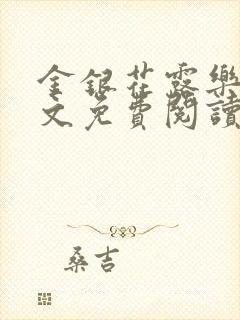 金銀花露樂
文免費閱讀
桑吉